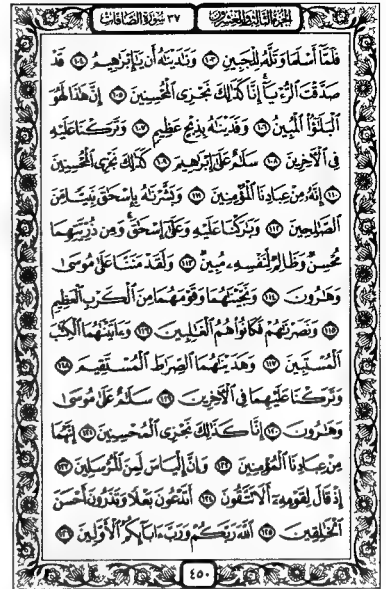 الجزء الثالث والعشرون ٣٧ سورة الصافات
فَلَمَّآ أَسْلَمَا وَتَلَّهُۥ لِلْجَبِينِ ١٠٣ وَنَٰدَيْنَٰهُ أَن يَٰٓإِبْرَٰهِيمُ ١٠٤ قَدْ
صَدَّقْتَ ٱلرُّءْيَآ إِنَّا كَذَٰلِكَ نَجْزِى ٱلْمُحْسِنِينَ ١٠٥ إِنَّ هَٰذَا لَهُوَ
ٱلْبَلَٰٓؤُا۟ ٱلْمُبِينُ ١٠٦ وَفَدَيْنَٰهُ بِذِبْحٍ عَظِيمٍ ١٠٧ وَتَرَكْنَا عَلَيْهِ
فِى ٱلْءَاخِرِينَ ١٠٨ سَلَٰمٌ عَلَىٰٓ إِبْرَٰهِيمَ ١٠٩ كَذَٰلِكَ نَجْزِى ٱلْمُحْسِنِينَ
١١٠ إِنَّهُۥ مِنْ عِبَادِنَا ٱلْمُؤْمِنِينَ ١١١ وَبَشَّرْنَٰهُ بِإِسْحَٰقَ نَبِيًّا مِّنَ
ٱلصَّٰلِحِينَ ١١٢ وَبَٰرَكْنَا عَلَيْهِ وَعَلَىٰٓ إِسْحَٰقَ وَمِن ذُرِّيَّتِهِمَا
مُحْسِنٌ وَظَالِمٌ لِّنَفْسِهِۦ مُبِينٌ ١١٣ وَلَقَدْ مَنَنَّا عَلَىٰ مُوسَىٰ
وَهَٰرُونَ ١١٤ وَنَجَّيْنَٰهُمَا وَقَوْمَهُمَا مِنَ ٱلْكَرْبِ ٱلْعَظِيمِ
١١٥ وَنَصَرْنَٰهُمْ فَكَانُوا۟ هُمُ ٱلْغَٰلِبِينَ ١١٦ وَءَاتَيْنَٰهُمَا ٱلْكِتَٰبَ
ٱلْمُسْتَبِينَ ١١٧ وَهَدَيْنَٰهُمَا ٱلصِّرَٰطَ ٱلْمُسْتَقِيمَ ١١٨
وَتَرَكْنَا عَلَيْهِمَا فِى ٱلْءَاخِرِينَ ١١٩ سَلَٰمٌ عَلَىٰ مُوسَىٰ
وَهَٰرُونَ ١٢٠ إِنَّا كَذَٰلِكَ نَجْزِى ٱلْمُحْسِنِينَ ١٢١ إِنَّهُمَا
مِنْ عِبَادِنَا ٱلْمُؤْمِنِينَ ١٢٢ وَإِنَّ إِلْيَاسَ لَمِنَ ٱلْمُرْسَلِينَ ١٢٣
إِذْ قَالَ لِقَوْمِهِۦٓ أَلَا تَتَّقُونَ ١٢٤ أَتَدْعُونَ بَعْلًا وَتَذَرُونَ أَحْسَنَ
ٱلْخَٰلِقِينَ ١٢٥ ٱللَّهَ رَبَّكُمْ وَرَبَّ ءَابَآئِكُمُ ٱلْأَوَّلِينَ ١٢٦
٤٥٠